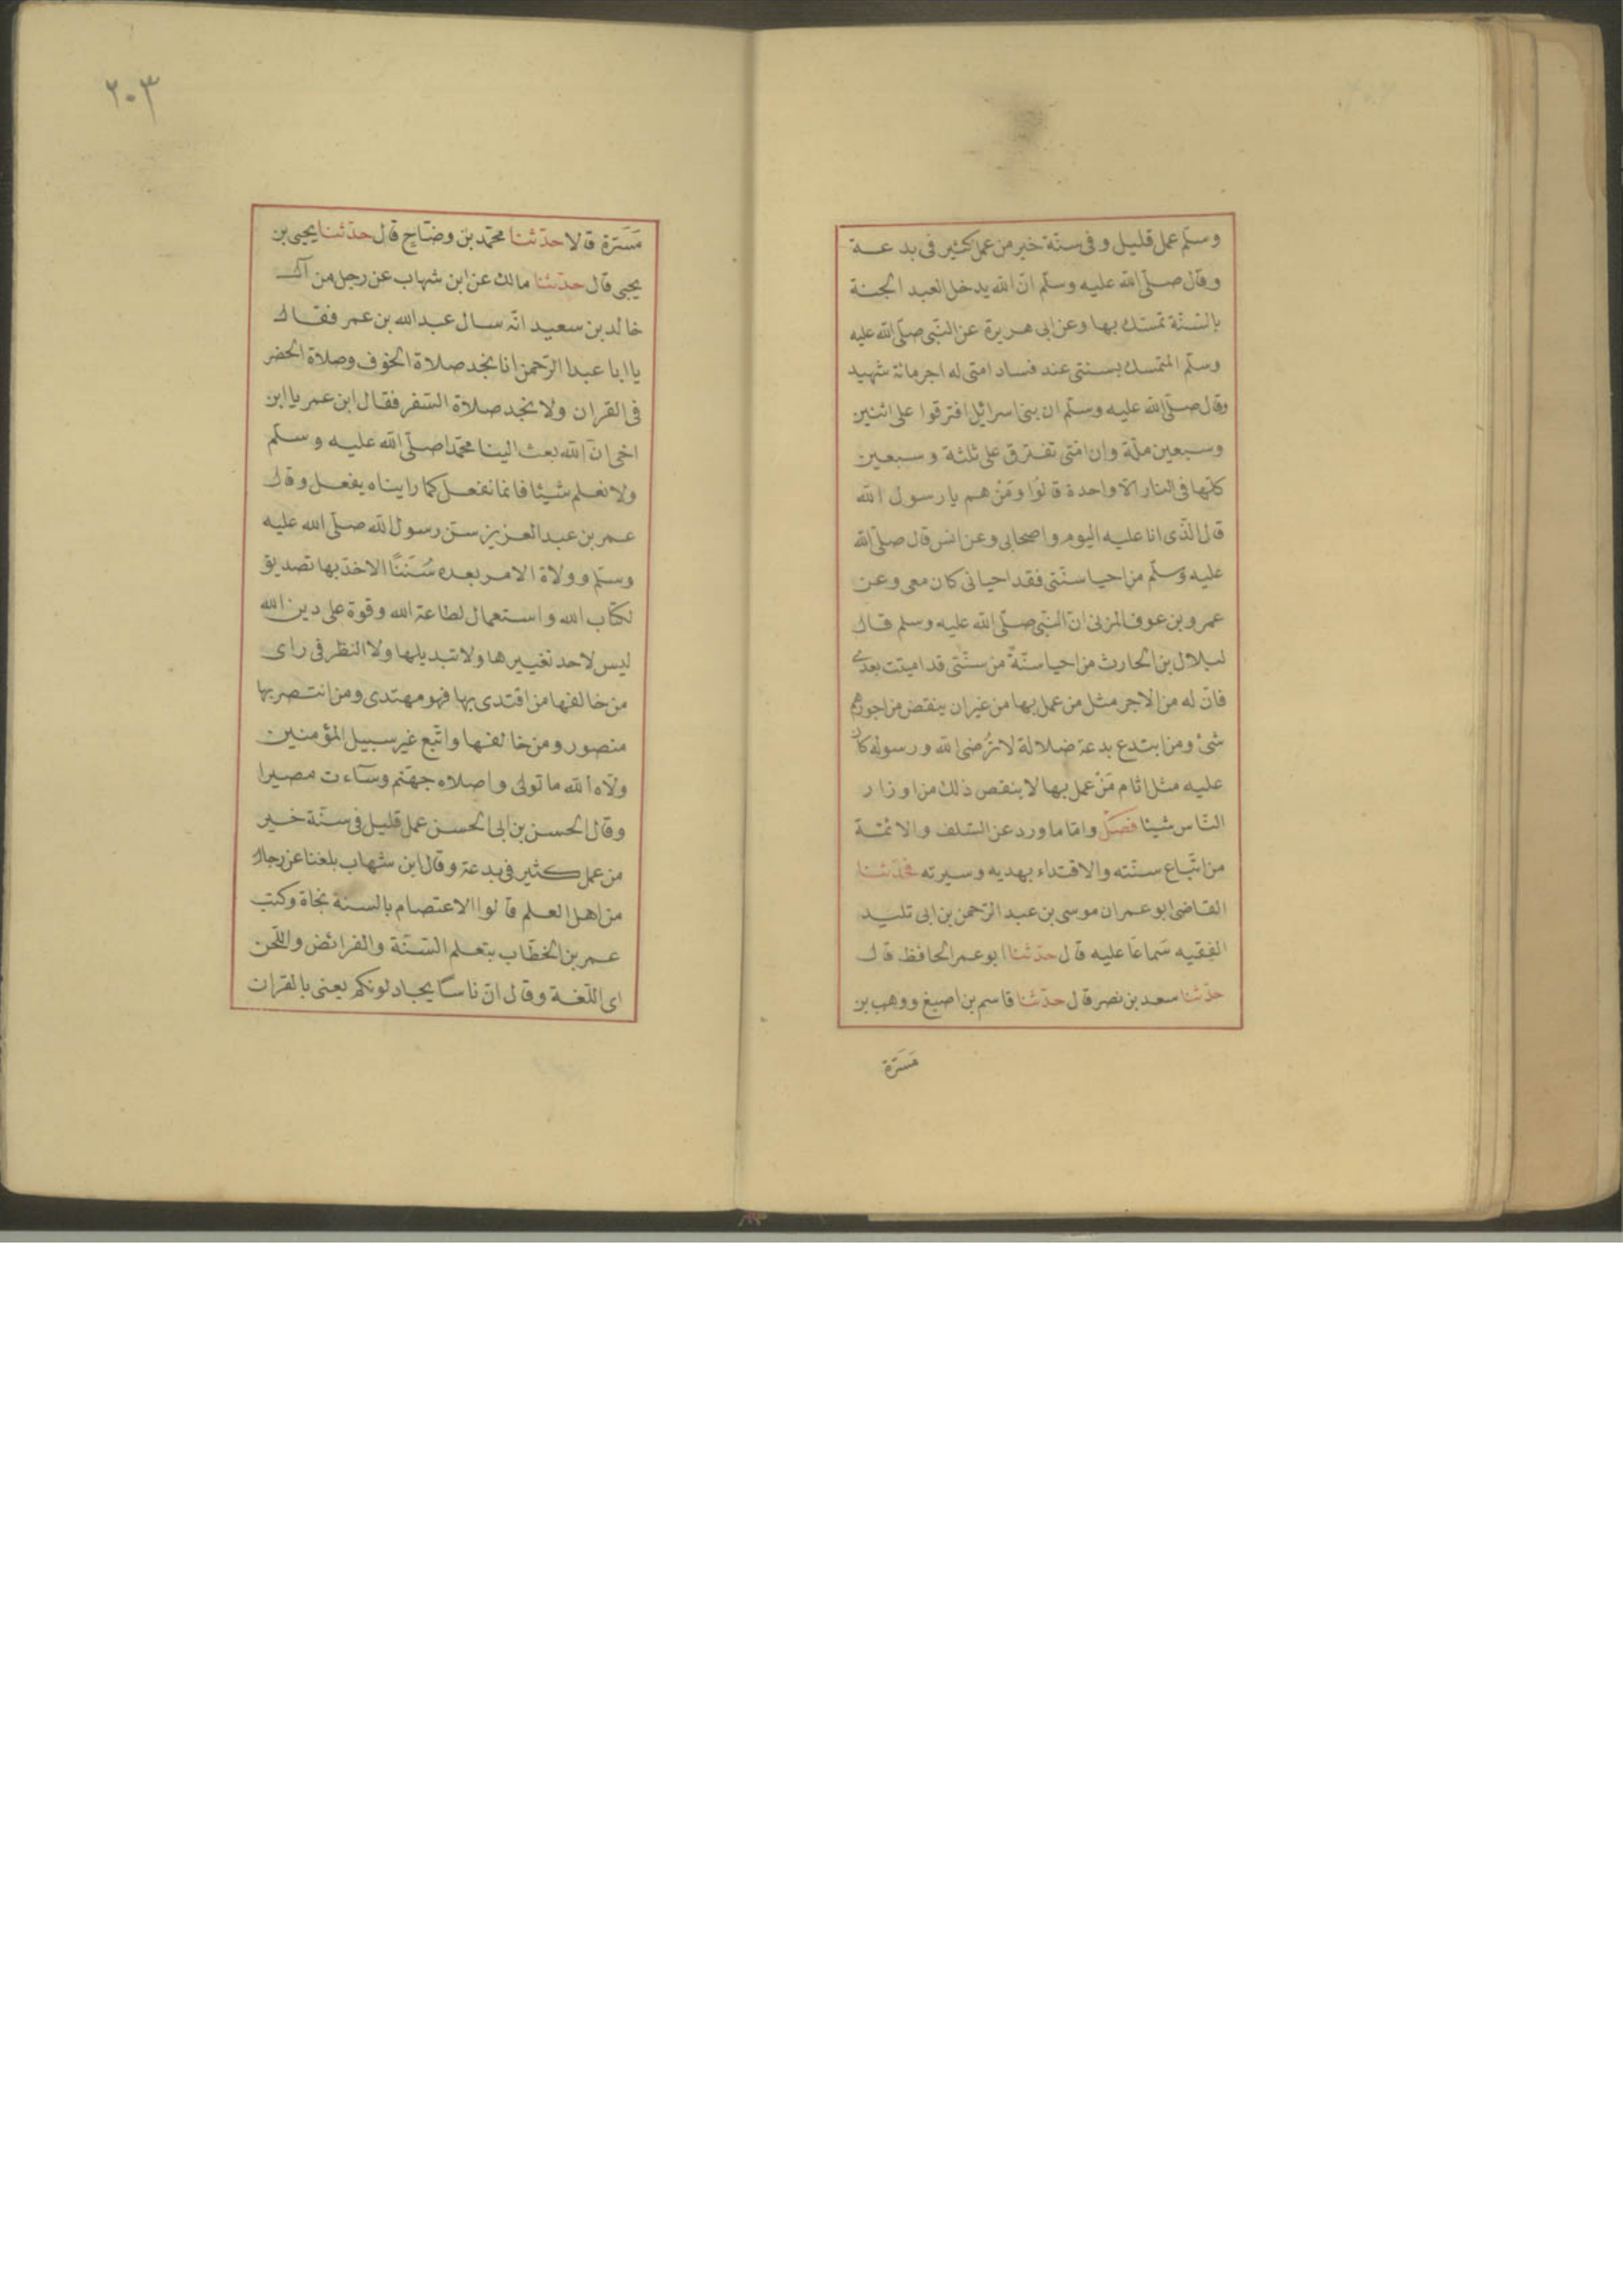 وسلّم عمل قليل وفى سنّة خير من عمل كثير فى بدعة
وقال صلّى الله عليه وسلّم انّ الله يدخل العبد الجنة
بالسّنّة تمسّك بها وعن ابى هريرة عن النّبى صلّى الله عليه
وسلّم المتمسك بسنتى عند فساد امتى له اجر مائة شهيد
وقال صلّى الله عليه وسلّم ان بنى اسرائيل افترقوا على اثنين
وسبعين ملّة وان امّتى تفترق على ثلثة وسبعين
كلّها فى النار الّا واحدة قالوا ومَنْ هم يا رسول الله
قال الّذى انا عليه اليوم واصحابى وعن انس قال صلّى الله
عليه وسلّم من احيا سنّتى فقد احيانى كان معى وعن
عمرو بن عوف المزنى انّ النّبى صلّى الله عليه وسلم قال
لبلال بن الحارث من احيا سنّةً من سنّتى قد اميتت بعدى
فانّ له من الاجر مثل من عمل بها من غير ان ينقص من اجورهم
شئ ومن ابتدع بدعة ضلالة لا تُرضى الله ورسوله كان
عليه مثل اثام مَنْ عمل بها لا ينقص ذلك من اوزار
النّاس شيئا فصل وامّا ما ورد عن السّلف والائمّة
من اتّباع سنّته والاقتداء بهديه وسيرته فحدّثنا
القاضى ابو عمران موسى بن عبد الرّحمن بن ابى تليد
الفقيه سَماعًا عليه قال حدّثنا ابو عمر الحافظ قال
حدّثنا سعد بن نصر قال حدّثنا قاسم بن اصبغ ووهب بن
مَسَرّة
٢٠٣
مَسَرّة قالا حدّثنا محمّد بن وضّاح قال حدّثنا يحيى بن
يحيى قال حدّثنا مالك عن ابن شهاب عن رجل من آل
خالد بن سعيد انّه سال عبد الله بن عمر فقال
يا ابا عبد الرّحمن انا نجد صلاة الخوف وصلاة الحضر
فى القران ولا نجد صلاة السّفر فقال ابن عمر يا ابن
اخى انّ الله بعث الينا محمّدا صلّى الله عليه وسلّم
ولا نعلم شيئا فانما نفعل كما رايناه يفعل وقال
عمر بن عبد العزيز سنّ رسول الله صلّى الله عليه
وسلم وولاة الامر بعده سُنَنًا الاخذ بها تصديق
لكتاب الله واستعمال لطاعة الله وقوة على دين الله
ليس لاحد تغييرها ولا تبديلها ولا النظر فى راى
من خالفها من اقتدى بها فهو مهتدى ومن انتصر بها
منصور ومن خالفها واتّبع غير سبيل المؤمنين
ولّاه الله ما تولّى واصلاه جهنّم وسآءت مصيرا
وقال الحسن بن ابى الحسن عمل قليل فى سنّة خير
من عمل كثير فى بدعة وقال ابن شهاب بلغنا عن رجال
من اهل العلم قالوا الاعتصام بالسنة نجاة وكتب
عمر بن الخطّاب بتعلم السّنّة والفرائض واللّحن
اى اللّغة وقال انّ ناسًا يجادلونكم يعنى بالقران